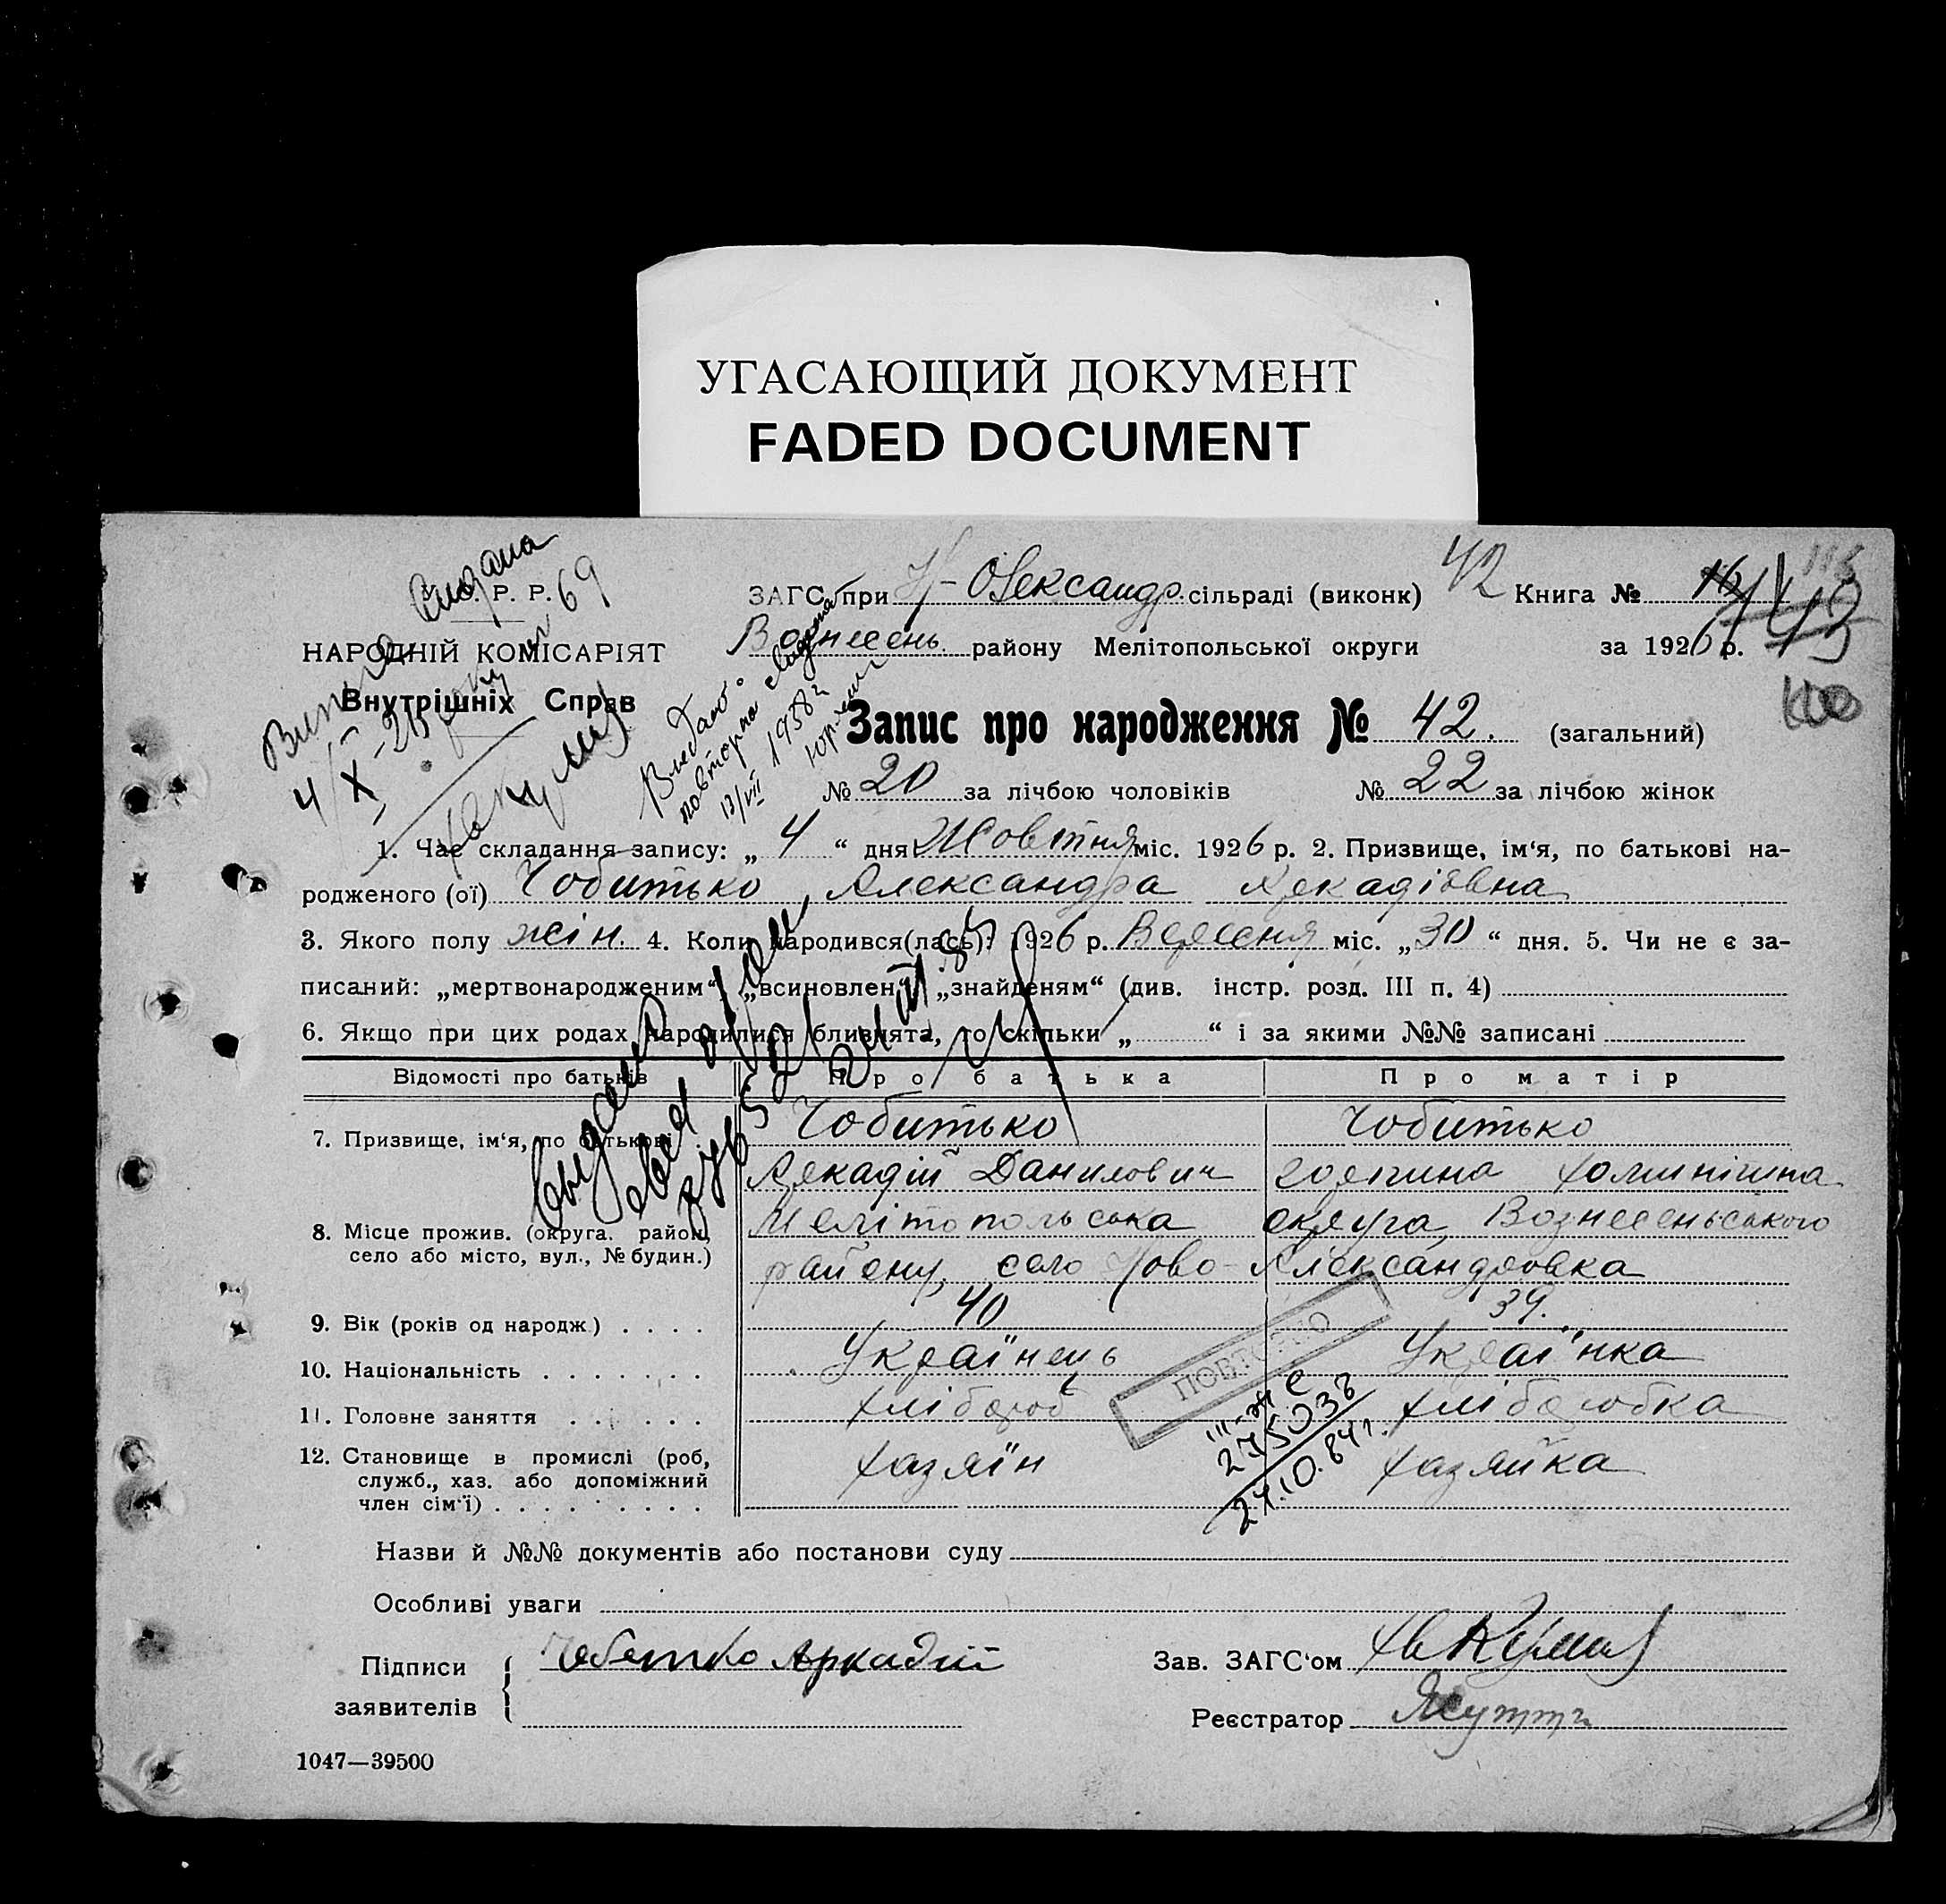 УГАСАЮЩИЙ ДОКУМЕНТ
FADED DOCUMENT
Р. Р.
НАРОДНІЙ КОМІСАРІЯТ
Внутрішніх Справ
69
4/X-26
ЗАГС при Н-Олександр. сільраді (виконк) 42 Книга №
Вознесень. району Мелітопольської округи за 1926 р.
Видано повторно
13/VII 1958 г
Запис про народження № 42. (загальний)
№ 20 за лічбою чоловіків № 22 за лічбою жінок
1. Час складання запису: „ 4 “ дня Жовтня міс. 1926 р. 2. Призвище, ім‘я, по батькові на-
родженого (ої) Чобитько Александра Аркадіёвна
3. Якого полу жін. 4. Коли народився(лась): 1926 р. Вересня міс. „30“ дня. 5. Чи не є за-
писаний: „мертвонародженим“, „всиновлен“, „знайденям“ (див. інстр. розд. III п. 4)
6. Якщо при цих родах народилися близнята, то скільки „ “ і за якими №№ записані
Відомості про батьків Про батька Про матір
7. Призвище, ім‘я, по батькові Чобитько Чобитько
Аркадій Данилович
8. Місце прожив. (округа, район, Мелітопольська округа, Вознесеньського
село або місто, вул., № будин.) району, село Ново-Александровка
9. Вік (років од народж) . . . . 40 39.
10. Національність . . . . . . . Українець Українка
11. Головне заняття . . . . . . хлібороб хліборобка
12. Становище в промислі (роб, хазяїн хазяйка
служб., хаз. або допоміжний
член сім‘ї) . . . . . . . . .
ПОВТОРНО
III-ЖС
275038
24.10.84г.
Назви й №№ документів або постанови суду
Особливі уваги
Підписи Чобитько Аркадій Зав. ЗАГС‘ом
заявителів
Реєстратор
1047—39500